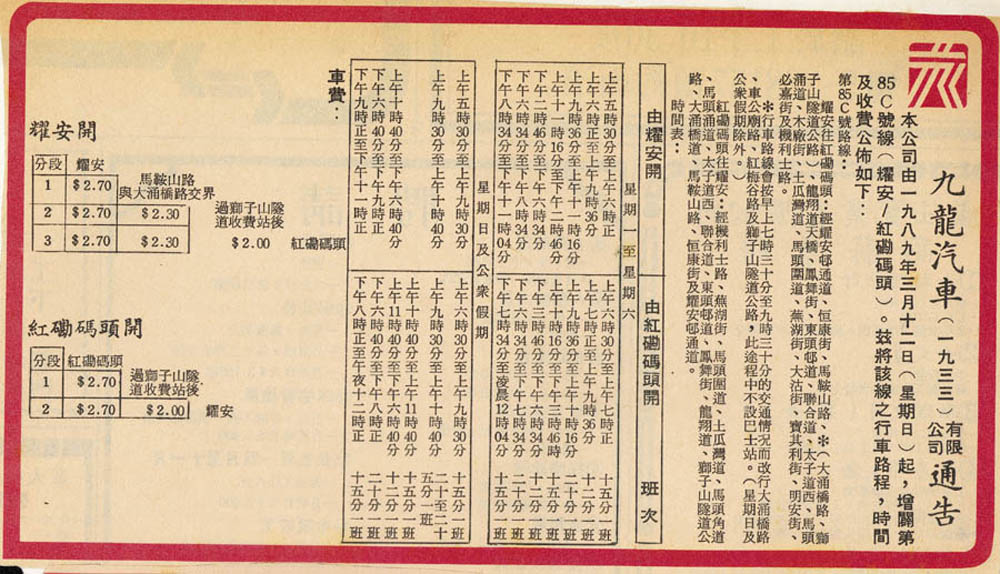 九龍汽車(一九三三)有限公司通告
本公司由一九八九年三月十二日(星期日)起,增闢第
85C號線(耀安/紅磡碼頭)。茲將該線之行車路程,時間
及收費公佈如下:
第85C號路線:
耀安往紅磡碼頭:經耀安邨通道、恒康街、馬鞍山路、※(大涌橋路、獅
子山隧道公路)、龍翔道天橋、鳳舞街、東頭邨道、聯合道、太子道西、馬頭
涌道、木廠街、土瓜灣道、馬頭圍道、蕪湖街、大沽街、寶其利街、明安街、
必嘉街及機利士路。
※行車路線會按早上七時三十分至九時三十分的交通情況而改行大涌橋路
、車公廟路、紅梅谷路及獅子山隧道公路,此途程中不設巴士站。(星期日及
公衆假期除外。)
紅磡碼頭往耀安:經機利士路、蕪湖街、馬頭圍道、土瓜灣道、馬頭角道
、馬頭涌道、太子道西、聯合道、東頭邨道、鳳舞街、龍翔道、獅子山隧道公
路、大涌橋道、馬鞍山路、恒康街及耀安邨通道。
時間表:
由耀安開 由紅磡碼頭開 班次
星期一至星期六
上午五時30分至上午六時正 上午六時30分至上午七時正 十五分一班
上午六時正至上午九時36分 上午七時正至上午九時36分 十二分一班
上午九時36分至上午十一時16分 上午九時36分至上午十時16分 二十分一班
上午十一時16分至下午二時46分 上午十時16分至下午三時46分
下午二時46分至下午六時34分 下午三時46分至下午六時34分 十二分一班
下午六時34分至下午八時34分 下午六時34分至下午七時34分
下午八時34分至下午十一時04分 下午七時34分至凌晨12時04分 十五分一班
星期日及公衆假期
上午五時30分至上午九時30分 上午六時30分至上午九時30分 十五分一班
上午九時30分至上午十時40分 上午九時30分至上午十時40分 二十至二十五分一班
上午十時40分至下午六時40分 上午十時40分至上午11時40分 二十分一班
上午11時40分至下午六時40分 十二分一班
下午六時40分至下午九時正 下午六時40分至下午八時正 二十分一班
下午九時正至下午十一時正 下午八時正至午夜十二時正 十五分一班
車費:
耀安開
分段 耀安
1 $2.70 馬鞍山路與大涌橋路交界
2 $2.70 $2.30 過獅子山隧道收費站後
3 $2.70 $2.30 $2.00 紅磡碼頭
紅磡碼頭開
分段 紅磡碼頭
1 $2.70 過獅子山隧道收費站後
2 $2.70 $2.00 耀安